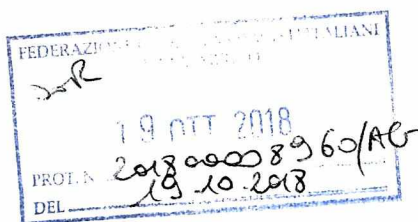 FEDERAZIONE ITALIANI
19 OTT 2018
PROT. N. 201800008960/AG
DEL 19.10.2018